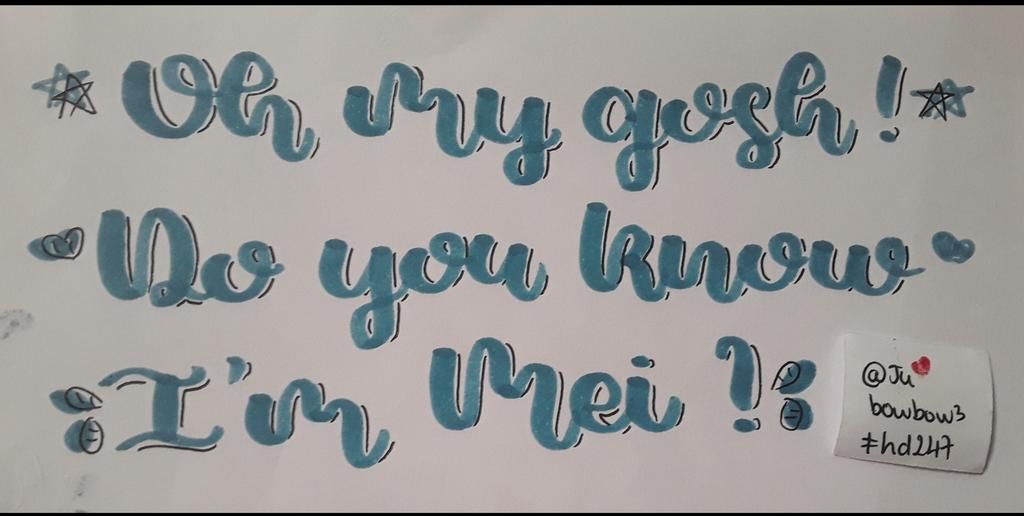 Oh my gosh !
Do you know
I'm Mei !
@Ju
bowbow3
#hd247